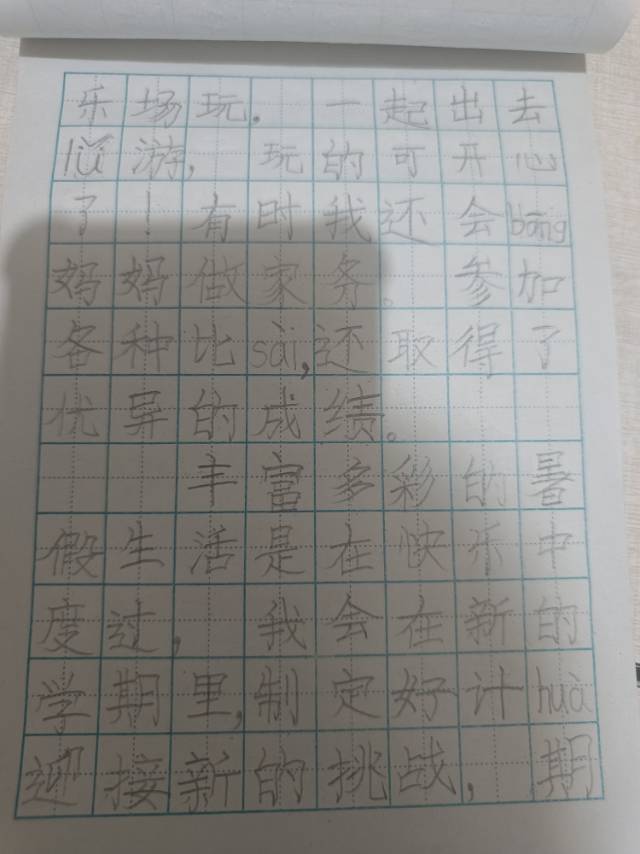 乐场玩。一起出去
lǚ游，玩的可开心
了！有时我还会bāng
妈妈做家务。参加
各种比sài，还取得了
优异的成绩。
丰富多彩的暑
假生活是在快乐中
度过，我会在新的
学期里，制定好计huà
迎接新的挑战，期